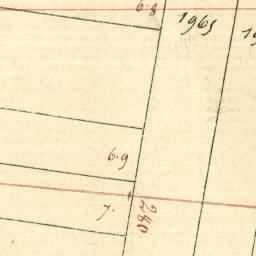 6.8
1965
19
6.9
7.